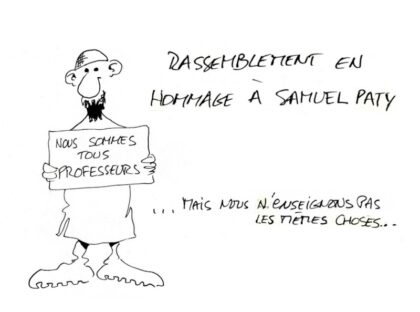 RASSEMBLEMENT EN
HOMMAGE À SAMUEL PATY
NOUS SOMMES
TOUS
PROFESSEURS
...MAIS NOUS N'ENSEIGNONS PAS
LES MÊMES CHOSES...